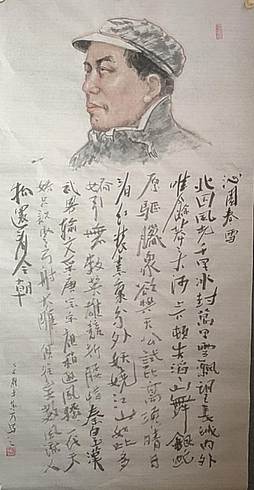 沁园春雪
北国风光千里冰封万里雪飘望长城内外
惟馀莽莽大河上下顿失滔滔山舞银蛇
原驰臘象欲与天公试比高须晴日
看红装素裹分外妖娆江山如此多
娇引无数英雄竞折腰惜秦皇汉
武略输文采唐宗宋祖稍逊风骚一代天
骄只识弯弓射大雕俱往矣数风流人
物还看今朝